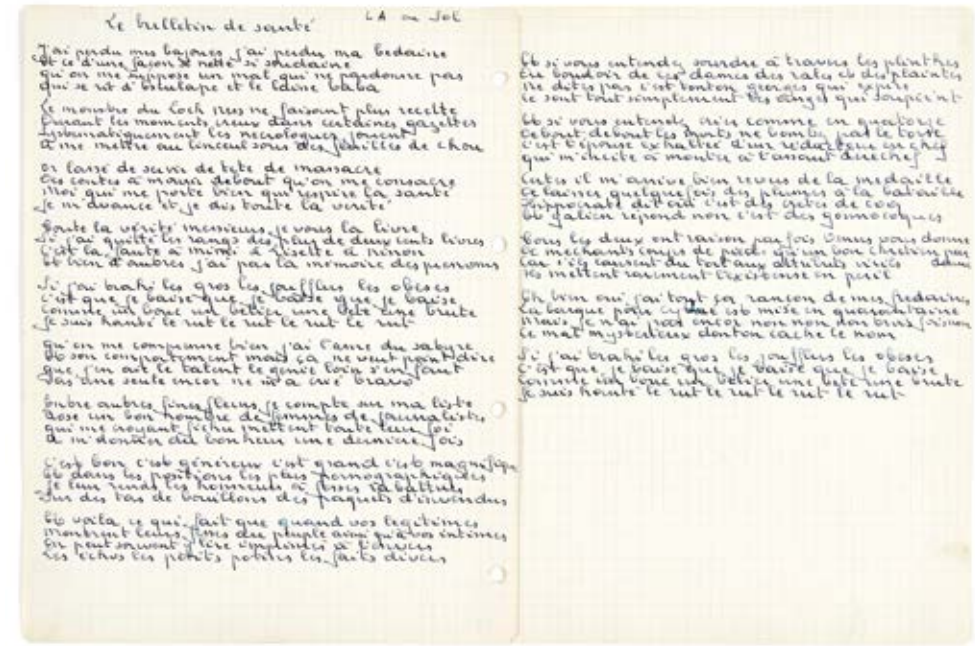 Le bulletin de santé
LA ou Sol
J'ai perdu mes bajoues j'ai perdu ma bedaine
Et ce d'une façon si nette si soudaine
qu'on me suppose un mal qui ne pardonne pas
qui se rit d'Esculape et le laisse baba
Le monstre du Loch Ness ne faisant plus recette
Durant les moments creux dans certaines gazettes
Systématiquement les nécrologues jouent
à me mettre au linceul sous des feuilles de chou
or lassé de servir de tête de massacre
Des contes à mourir debout qu'on me consacre
Moi qui me porte bien qui respire la santé
Je m'avance et je dis toute la vérité
Toute la vérité messieurs je vous la livre
Si j'ai quitté les rangs des plus de deux cents livres
C'est la faute à Mimi à Lisette à Ninon
Et bien d'autres j'ai pas la mémoire des prenoms
Si j'ai trahi les gros les joufflus les obèses
C'est que je baise que je baise que je baise
Comme un bouc un bélier une bête une brute
Je suis hanté le rut le rut le rut le rut
qu'on me comprenne bien j'ai l'âme du satyre
Et son comportement mais ça ne veut point dire
que j'en ait le talent le génie loin s'en faut
Pas une seule encor ne m'a crié bravo
Entre autres fines fleurs je compte sur ma liste
Rose un bon nombre de femmes de journalistes
qui me croyant fichu mettent toute leur foi
à m'donner du bonheur une dernière fois
C'est bon c'est généreux c'est grand c'est magnifique
Et dans les positions les plus pornographiques
Je leur rends les honneurs à fesses rabattues
Sur des tas de bouillons des paquets d'invendus
Et voilà ce qui fait que quand vos légitimes
Montrent leurs fesses au peuple ainsi qu'à vos intimes
On peut souvent y lire imprimés à l'envers
Les échos les petits potins les faits divers
Et si vous entendez sourdre à travers les plinthes
Du boudoir de ces dames des rales et des plaintes
Ne dites pas c'est tonton georges qui expire
Ce sont tout simplement les anges qui soupir'nt
Et si vous entendez crier comme en quatorze
Debout debout les morts ne bombez pas le torse
C'est l'épouse exaltée d'un rédacteur en chef
qui m'incite à monter à l'assaut derechef
Certes il m'arrive bien revers de la médaille
De laisser quelquefois des plumes à la bataille
Hippocrate dit oui c'est des crêtes de coq
Et Galien répond non c'est des gonnocoques
Tous les deux ont raison parfois Vénus vous donne
De méchants coups de pieds qu'un bon chrétien pardonne
Car s'ils causent du tort aux attributs virils
Ils mettent rarement l'existence en péril
Eh bien oui j'ai tout ça rançon de mes fredaines
La barque pour Cythère est mise en quarantaine
Mais je n'ai pas encor non non non trois fois non
Ce mal mystérieux dont on cache le nom
Si j'ai trahi les gros les joufflus les obèses
C'est que je baise que je baise que je baise
Comme un bouc un bélier une bête une brute
Je suis hanté le rut le rut le rut le rut